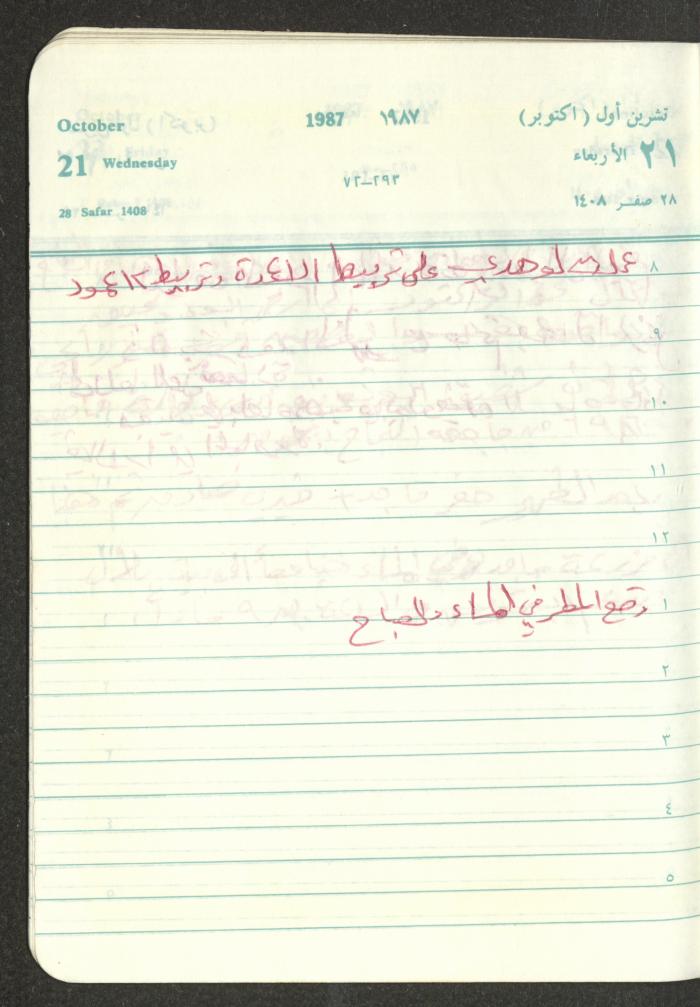 October 1987 ١٩٨٧ تشرين أول ( اكتوبر )
21 Wednesday ٢٩٣-٧٢ ٢١ الأربعاء
28 Safar 1408 ٢٨ صفر ١٤٠٨
٨ عملت لوحدي على تربيط الاعمدة وتربيط ١٢ عمود
٩
١٠
١١
١٢
١ وقع المطر في المساء والصباح
٢
٣
٤
٥